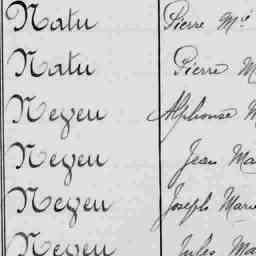 Natu Pierre Mie
Natu Pierre M
Neyeu Alphonse M
Neyeu Jean Ma
Neyeu Joseph Marie
Neyeu Jules Ma